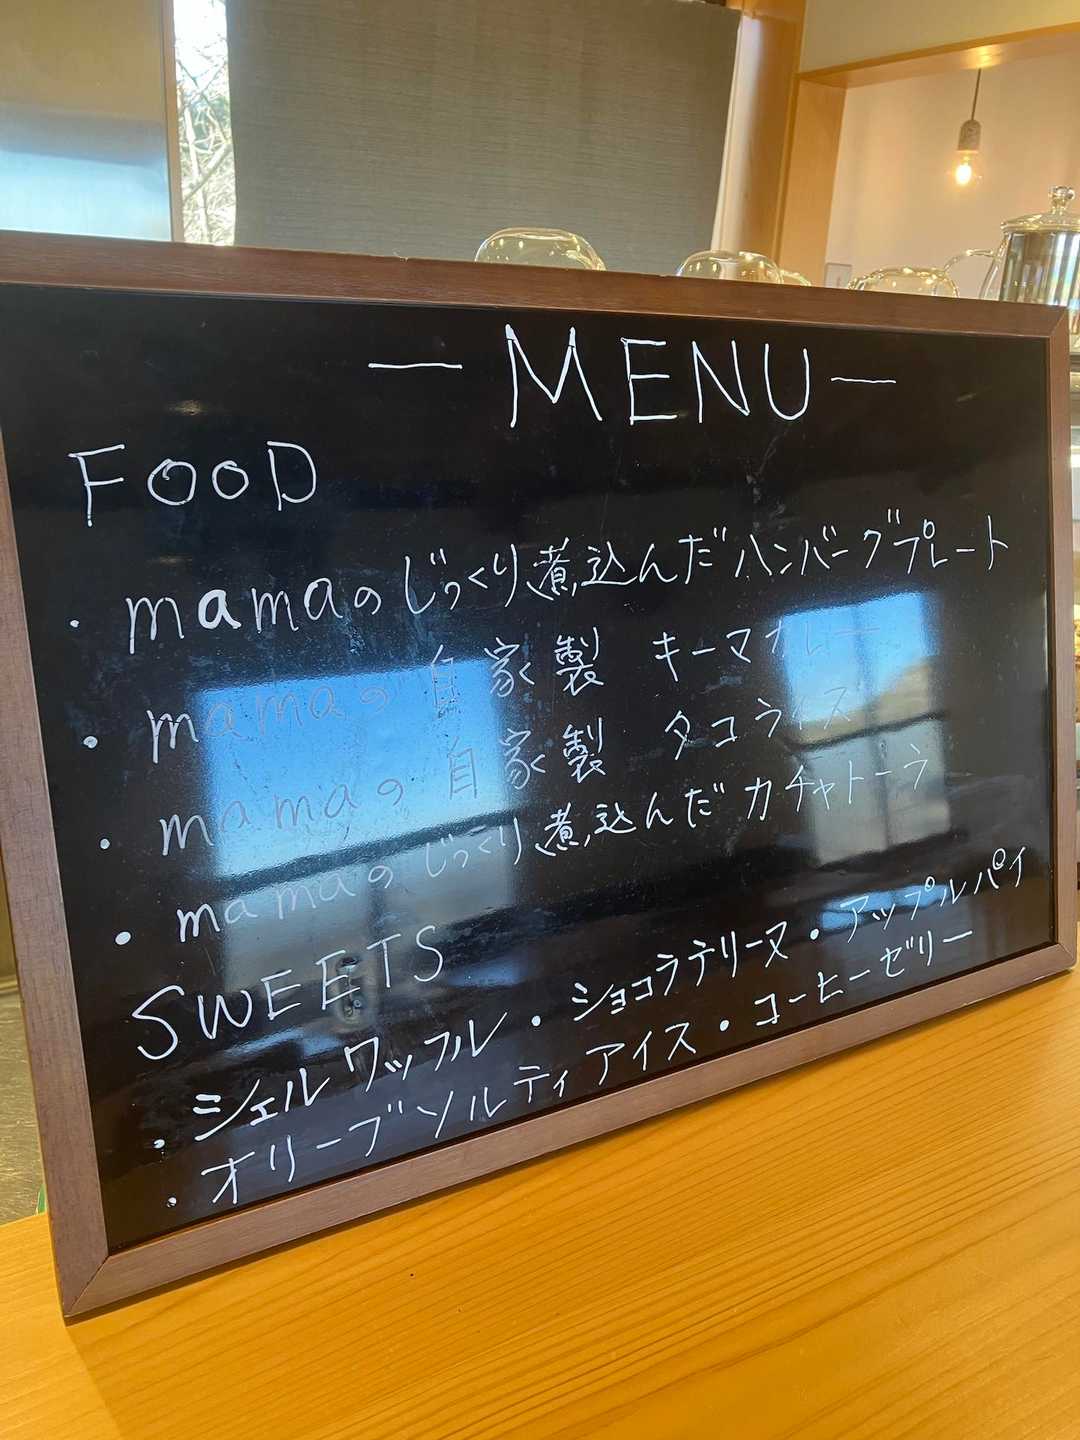 — MENU —
FOOD
・mamaのじっくり煮込んだハンバーグプレート
・mamaの自家製 キーマカレー
・mamaの自家製 タコライス
・mamaのじっくり煮込んだカチャトーラ
SWEETS
・シェルワッフル・ショコラテリーヌ・アップルパイ
・オリーブソルティアイス・コーヒーゼリー